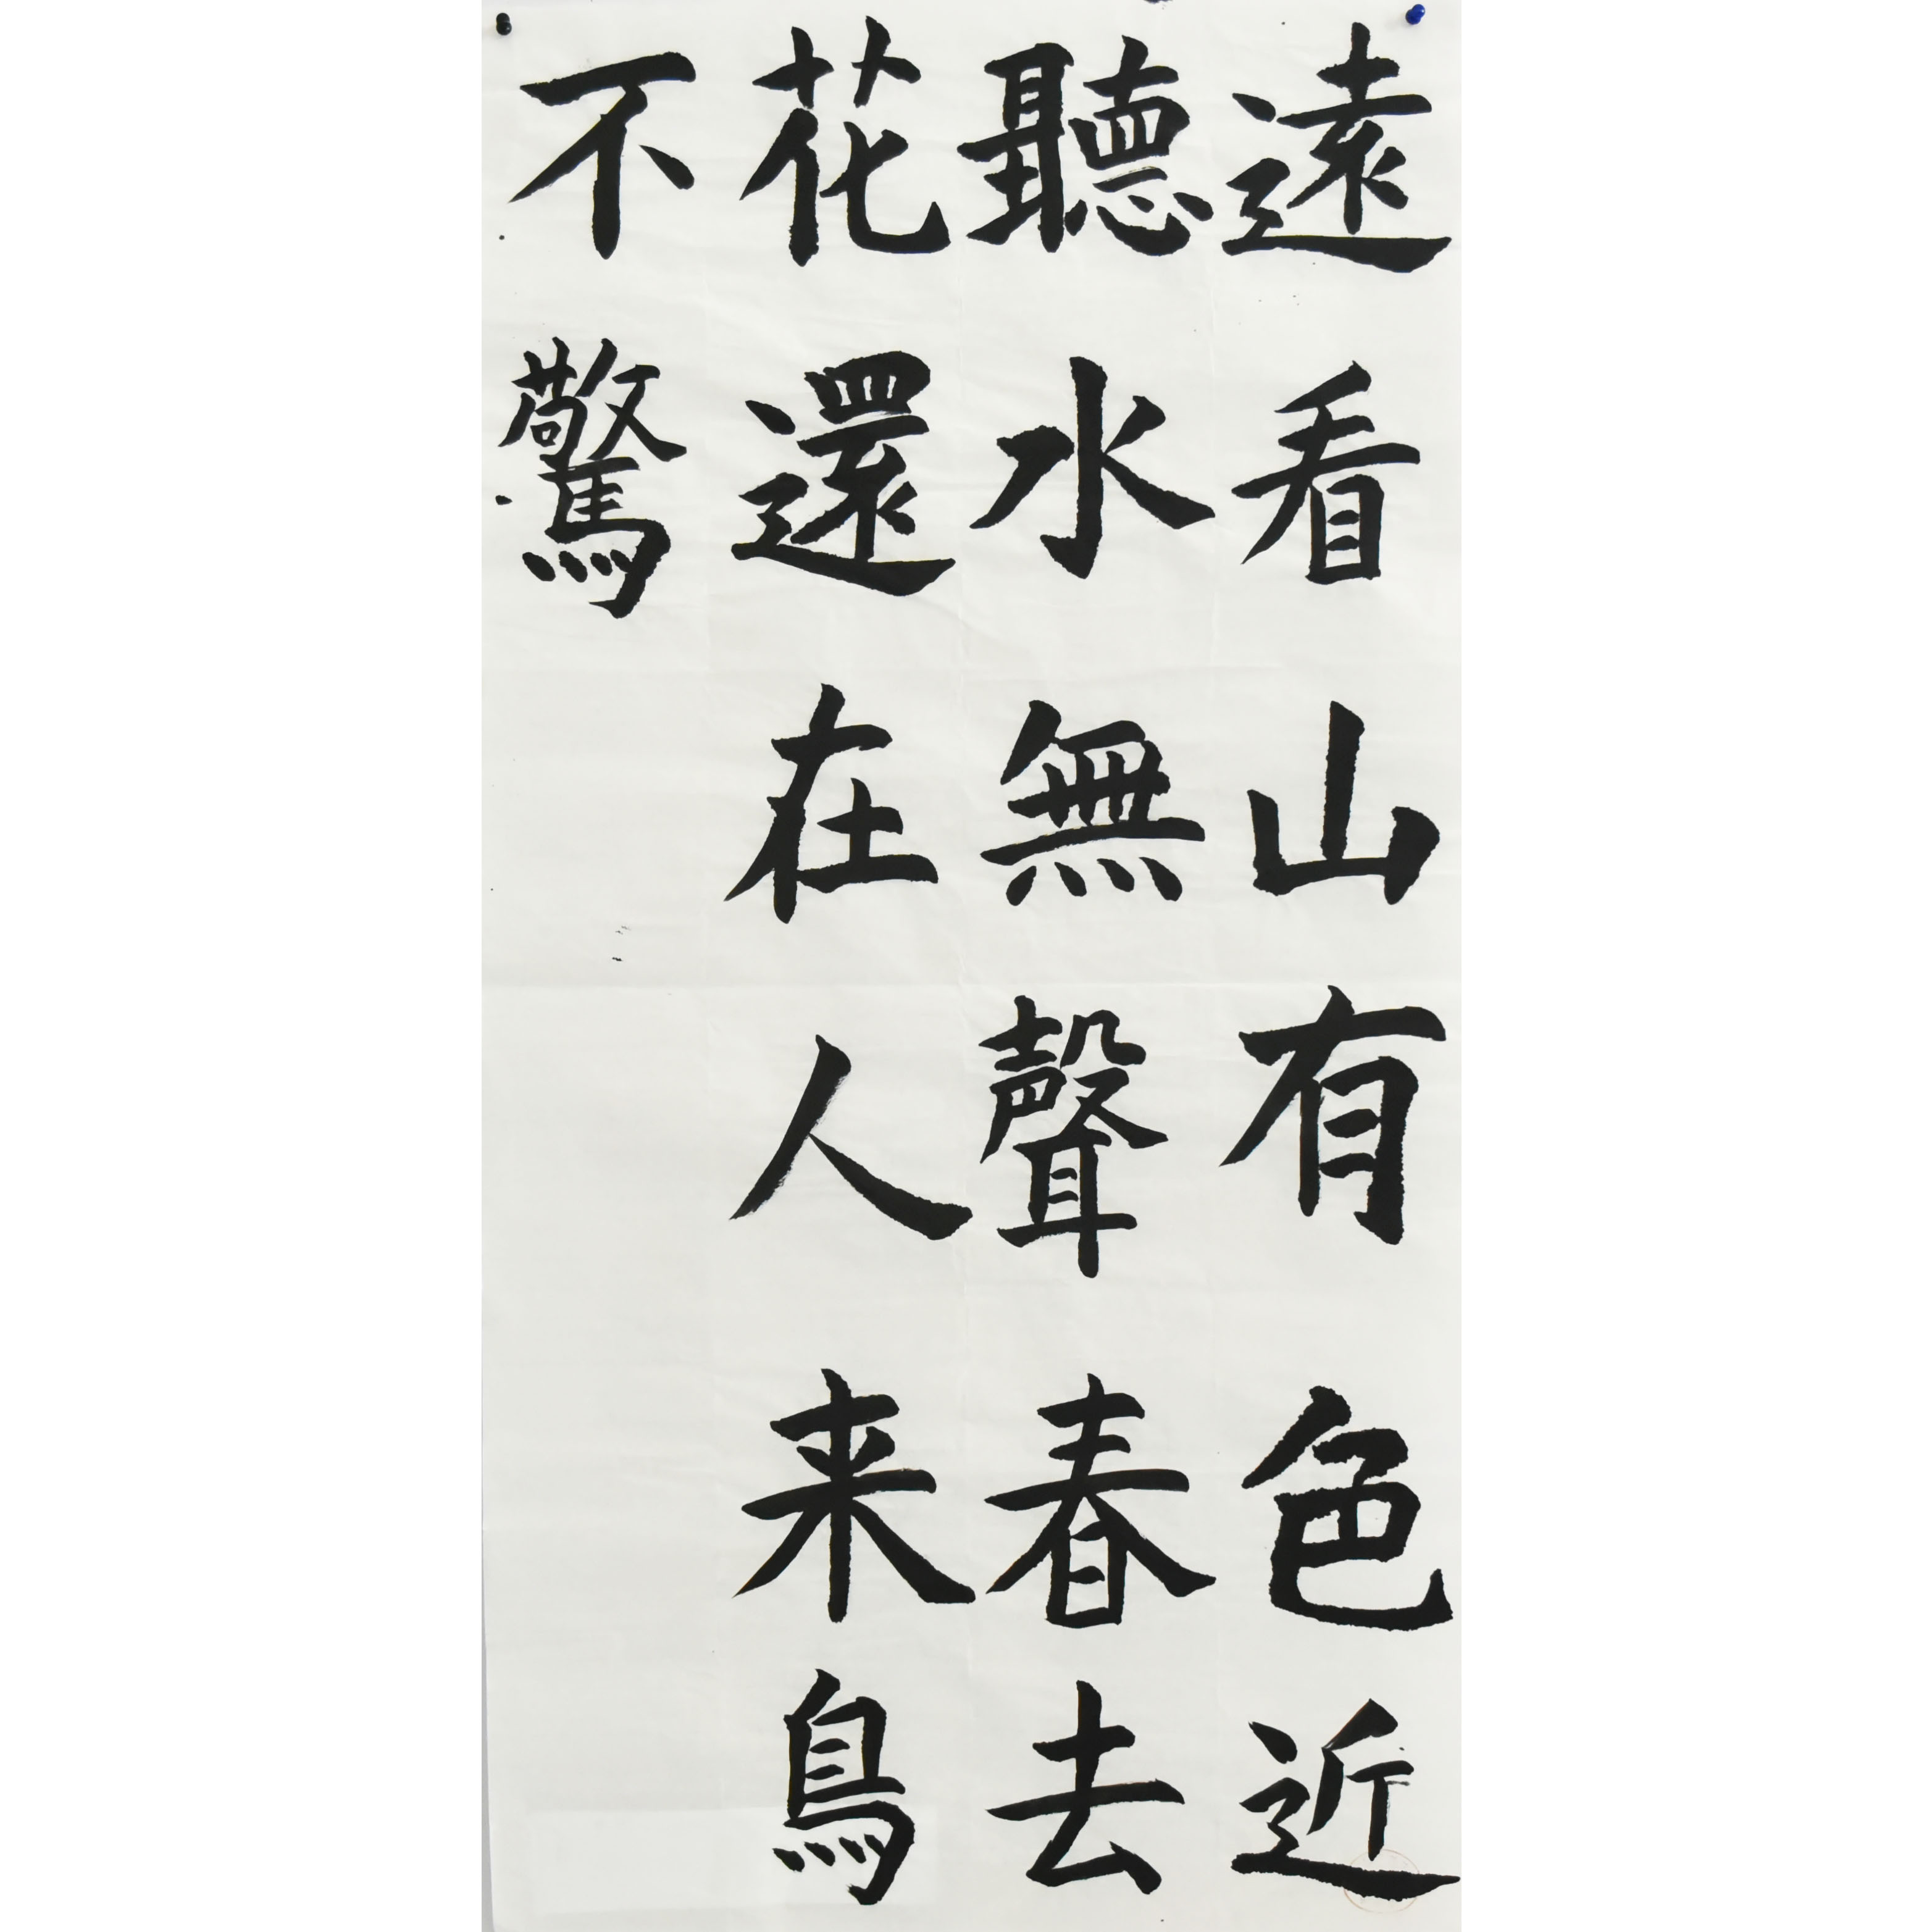 遠看山有色近
聽水無聲春去
花還在人来鳥
不驚